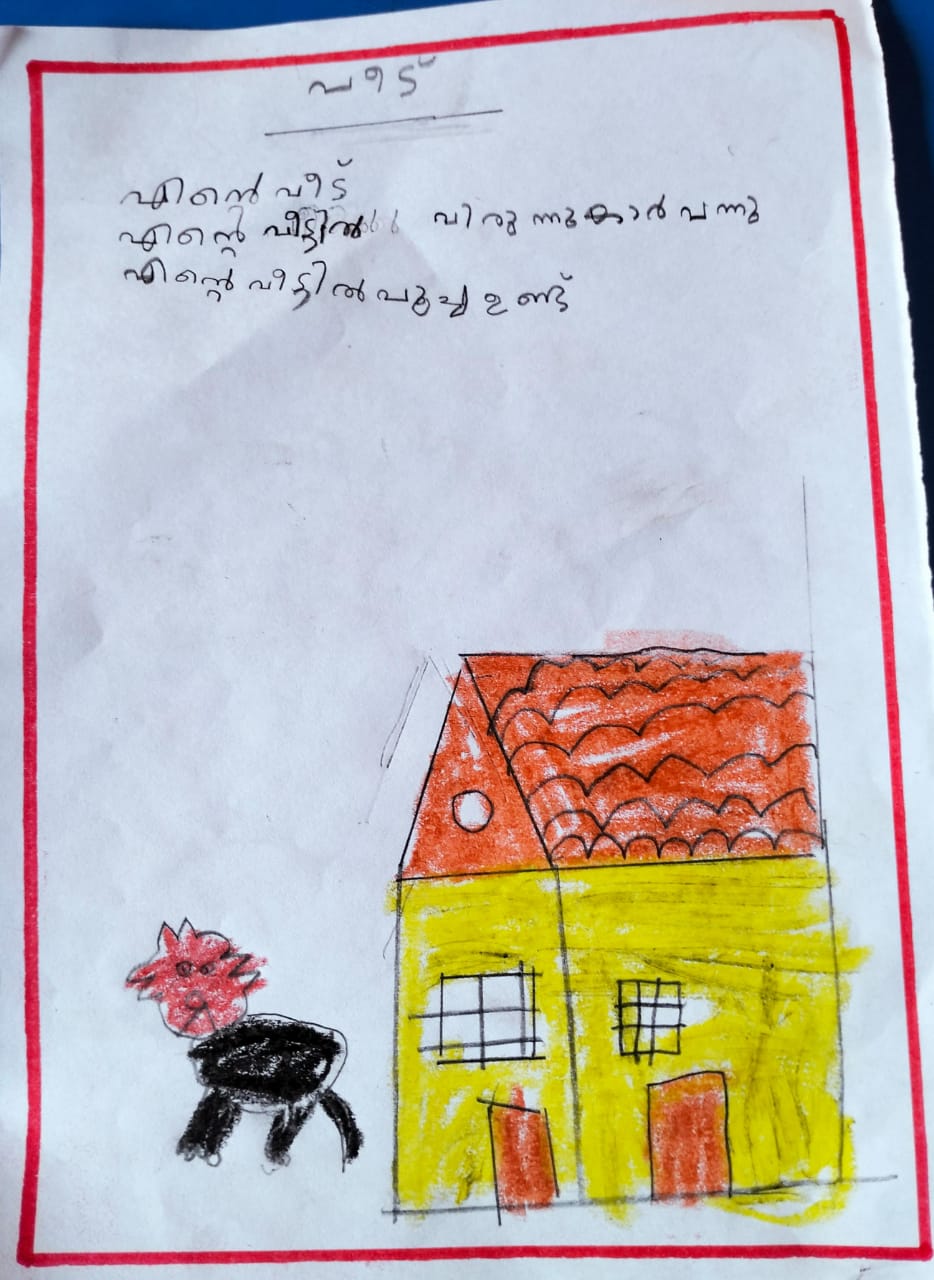 വീട്
എന്റെ വീട്
എന്റെ വീട്ടിൽ വിരുന്നുകാർ വന്നു
എന്റെ വീട്ടിൽ പൂച്ച ഉണ്ട്